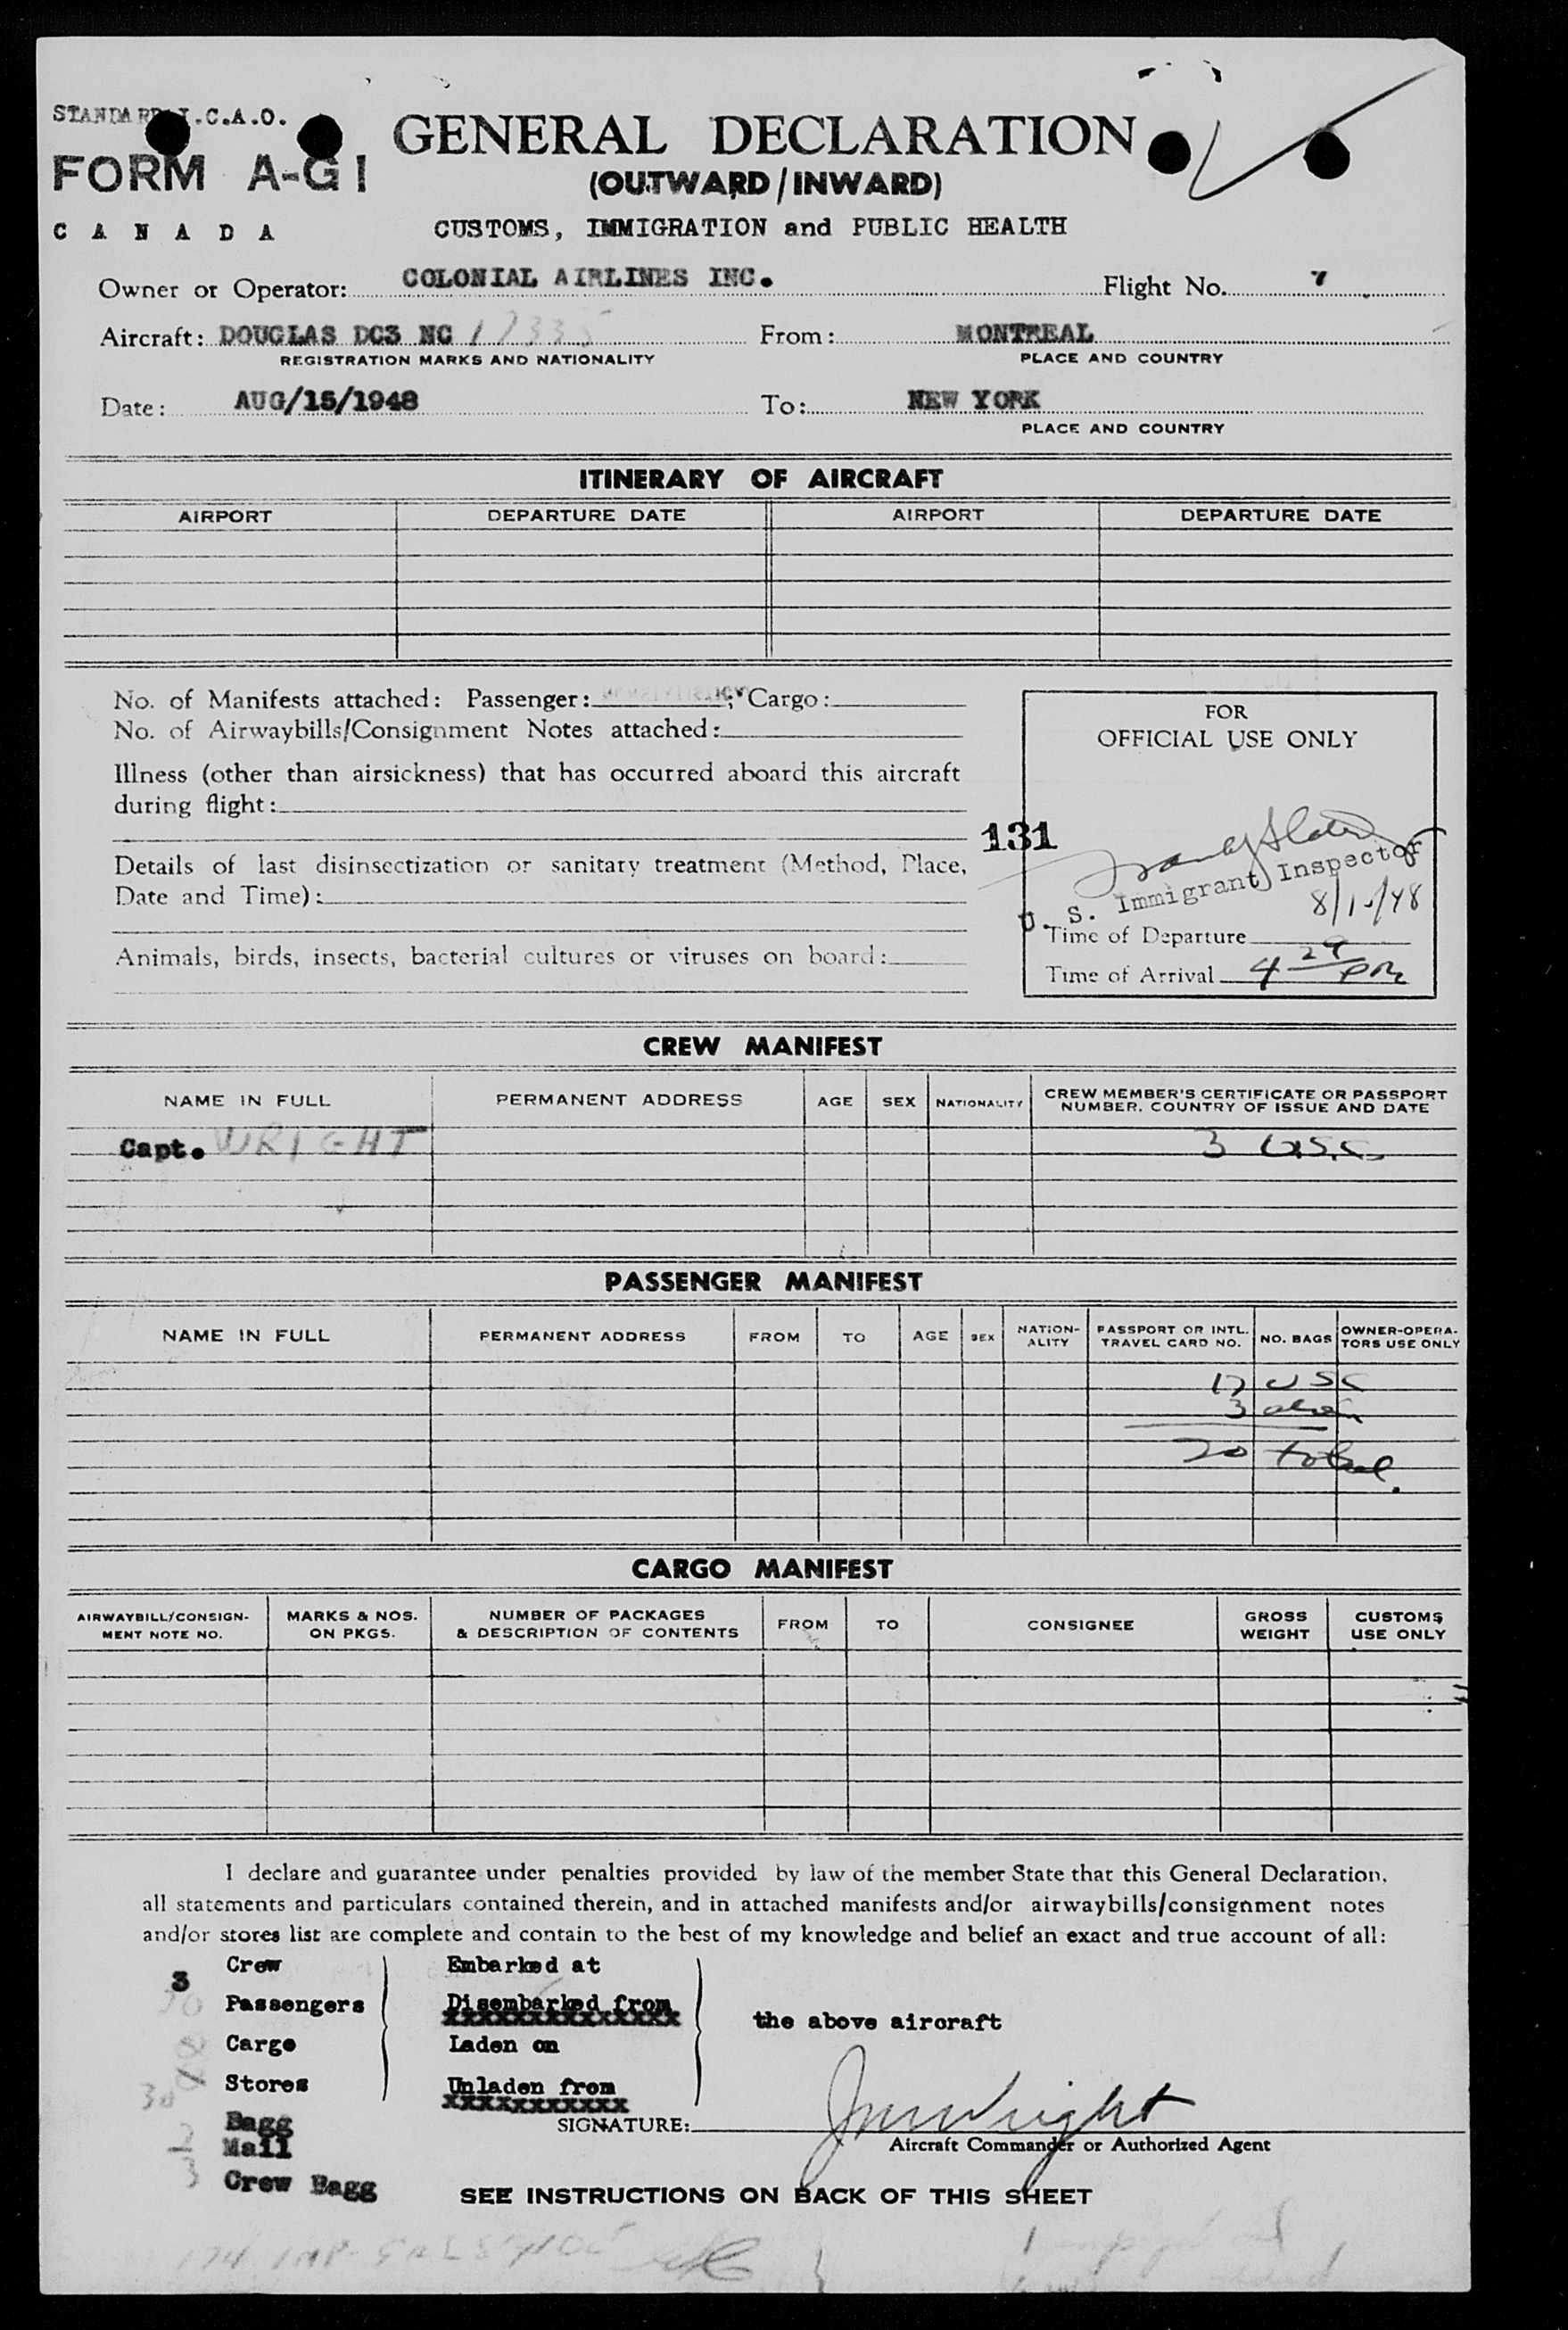 STANDARD I.C.A.O.
FORM A-G1
CANADA
GENERAL DECLARATION
(OUTWARD/INWARD)
CUSTOMS, IMMIGRATION and PUBLIC HEALTH
Owner or Operator: COLONIAL AIRLINES INC. Flight No. 7
Aircraft: DOUGLAS DC3 NC 17335 From: MONTREAL
REGISTRATION MARKS AND NATIONALITY PLACE AND COUNTRY
Date: AUG/15/1948 To: NEW YORK
PLACE AND COUNTRY
ITINERARY OF AIRCRAFT
AIRPORT DEPARTURE DATE AIRPORT DEPARTURE DATE
No. of Manifests attached: Passenger: ; Cargo:
No. of Airwaybills/Consignment Notes attached:
Illness (other than airsickness) that has occurred aboard this aircraft
during flight:
Details of last disinsectization or sanitary treatment (Method, Place,
Date and Time):
Animals, birds, insects, bacterial cultures or viruses on board:
FOR
OFFICIAL USE ONLY
131
U. S. Immigrant Inspector
Time of Departure
Time of Arrival 4 29 PM
CREW MANIFEST
NAME IN FULL PERMANENT ADDRESS AGE SEX NATIONALITY CREW MEMBER'S CERTIFICATE OR PASSPORT
NUMBER, COUNTRY OF ISSUE AND DATE
Capt. WRIGHT 3 U.S.C.
PASSENGER MANIFEST
NAME IN FULL PERMANENT ADDRESS FROM TO AGE SEX NATION-
ALITY PASSPORT OR INTL.
TRAVEL CARD NO. NO. BAGS OWNER-OPERA-
TORS USE ONLY
17 USC
3 alien
20 total.
CARGO MANIFEST
AIRWAYBILL/CONSIGN-
MENT NOTE NO. MARKS & NOS.
ON PKGS. NUMBER OF PACKAGES
& DESCRIPTION OF CONTENTS FROM TO CONSIGNEE GROSS
WEIGHT CUSTOMS
USE ONLY
I declare and guarantee under penalties provided by law of the member State that this General Declaration,
all statements and particulars contained therein, and in attached manifests and/or airwaybills/consignment notes
and/or stores list are complete and contain to the best of my knowledge and belief an exact and true account of all:
3 Crew Embarked at
Passengers Disembarked from
the above aircraft
Cargo Laden on
Stores Unladen from
30 Bagg
2 Mail
3 Crew Bagg
SIGNATURE: JM Wright
Aircraft Commander or Authorized Agent
SEE INSTRUCTIONS ON BACK OF THIS SHEET